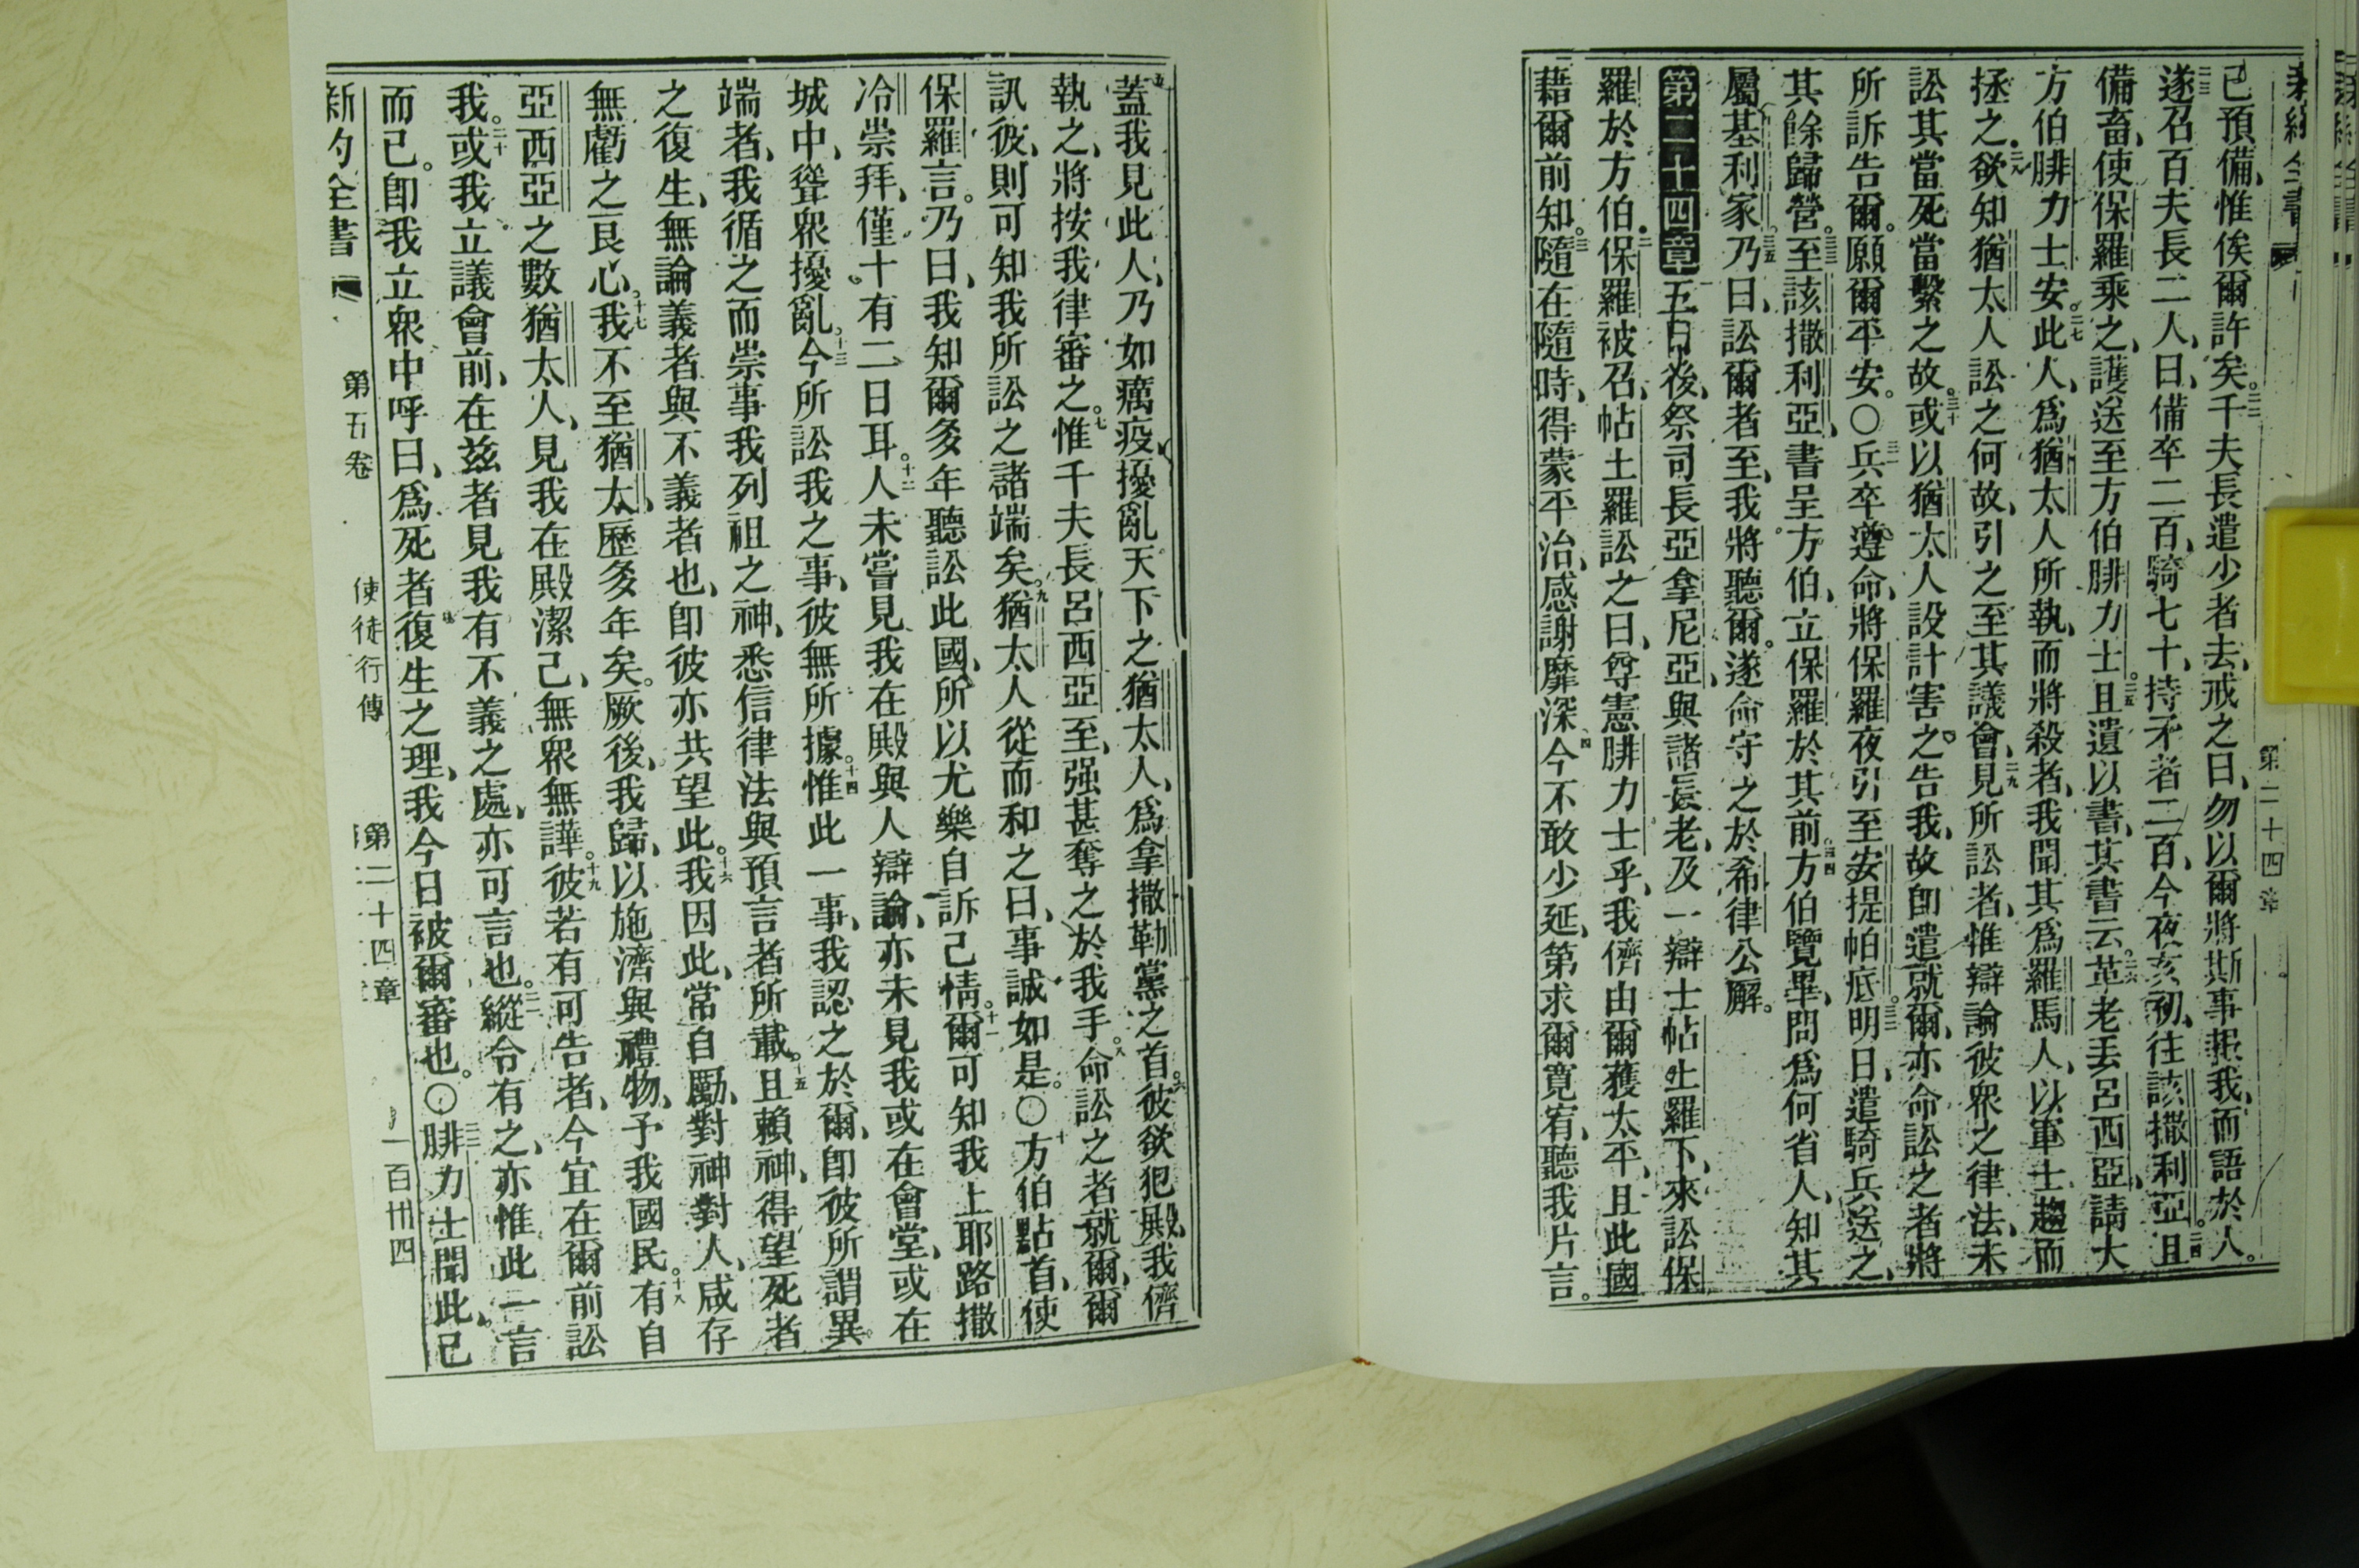 新約全書 第二十四章
已預備、惟俟爾許矣。二二千夫長遣少者去、戒之曰、勿以爾將斯事報我、而語於人。
二三遂召百夫長二人、曰、備卒二百、騎七十、持矛者二百、今夜亥初、往該撒利亞。二四且
備畜、使保羅乘之、護送至方伯腓力士。二五且遺以書、其書云。二六革老丟呂西亞、請大
方伯腓力士安。二七此人、爲猶太人所執、而將殺者、我聞其爲羅馬人、以軍士趨而
拯之。二八欲知猶太人訟之何故、引之至其議會、二九見所訟者、惟辯論彼衆之律法、未
訟其當死當繫之故。三十或以猶太人設計害之告我、故卽遣就爾、亦命訟之者將
所訴告爾。願爾平安。〇三一兵卒遵命、將保羅夜引至安提帕底。三二明日、遣騎兵送之、
其餘歸營。三三至該撒利亞、書呈方伯、立保羅於其前。三四方伯覽畢、問爲何省人、知其
屬基利家。三五乃曰、訟爾者至、我將聽爾。遂命守之於希律公廨。
第二十四章 一五日後、祭司長亞拿尼亞、與諸長老、及一辯士帖土羅下、來訟保
羅於方伯。二保羅被召、帖土羅訟之曰、尊憲腓力士乎、我儕由爾獲太平、且此國
藉爾前知。三隨在隨時、得蒙平治、感謝靡深。四今不敢少延、第求爾寬宥、聽我片言。
五蓋我見此人、乃如癘疫、擾亂天下之猶太人、爲拿撒勒黨之首。六彼欲犯殿、我儕
執之、將按我律審之。七惟千夫長呂西亞至、强甚奪之於我手。八命訟之者就爾、爾
訊彼、則可知我所訟之諸端矣。九猶太人從而和之曰、事誠如是。〇十方伯點首、使
保羅言。乃曰、我知爾多年聽訟此國、所以尤樂自訴己情。十一爾可知我上耶路撒
冷崇拜、僅十有二日耳。十二人未嘗見我在殿與人辯論、亦未見我或在會堂、或在
城中、聳衆擾亂。十三今所訟我之事、彼無所據。十四惟此一事、我認之於爾、卽彼所謂異
端者、我循之而崇事我列祖之神、悉信律法與預言者所載。十五且賴神、得望死者
之復生、無論義者與不義者也、卽彼亦共望此。十六我因此、常自勵、對神對人、咸存
無虧之良心。十七我不至猶太、歷多年矣。厥後、我歸、以施濟與禮物、予我國民。十八有自
亞西亞之數猶太人、見我在殿潔己、無衆無譁。十九彼若有可告者、今宜在爾前訟
我。二十或我立議會前、在兹者見我有不義之處、亦可言也。二一縱令有之、亦惟此一言
而已。卽我立衆中呼曰、爲死者復生之理、我今日被爾審也。〇二二腓力士聞此、已
新約全書 第五卷 使徒行傳 第二十四章 一百卅四